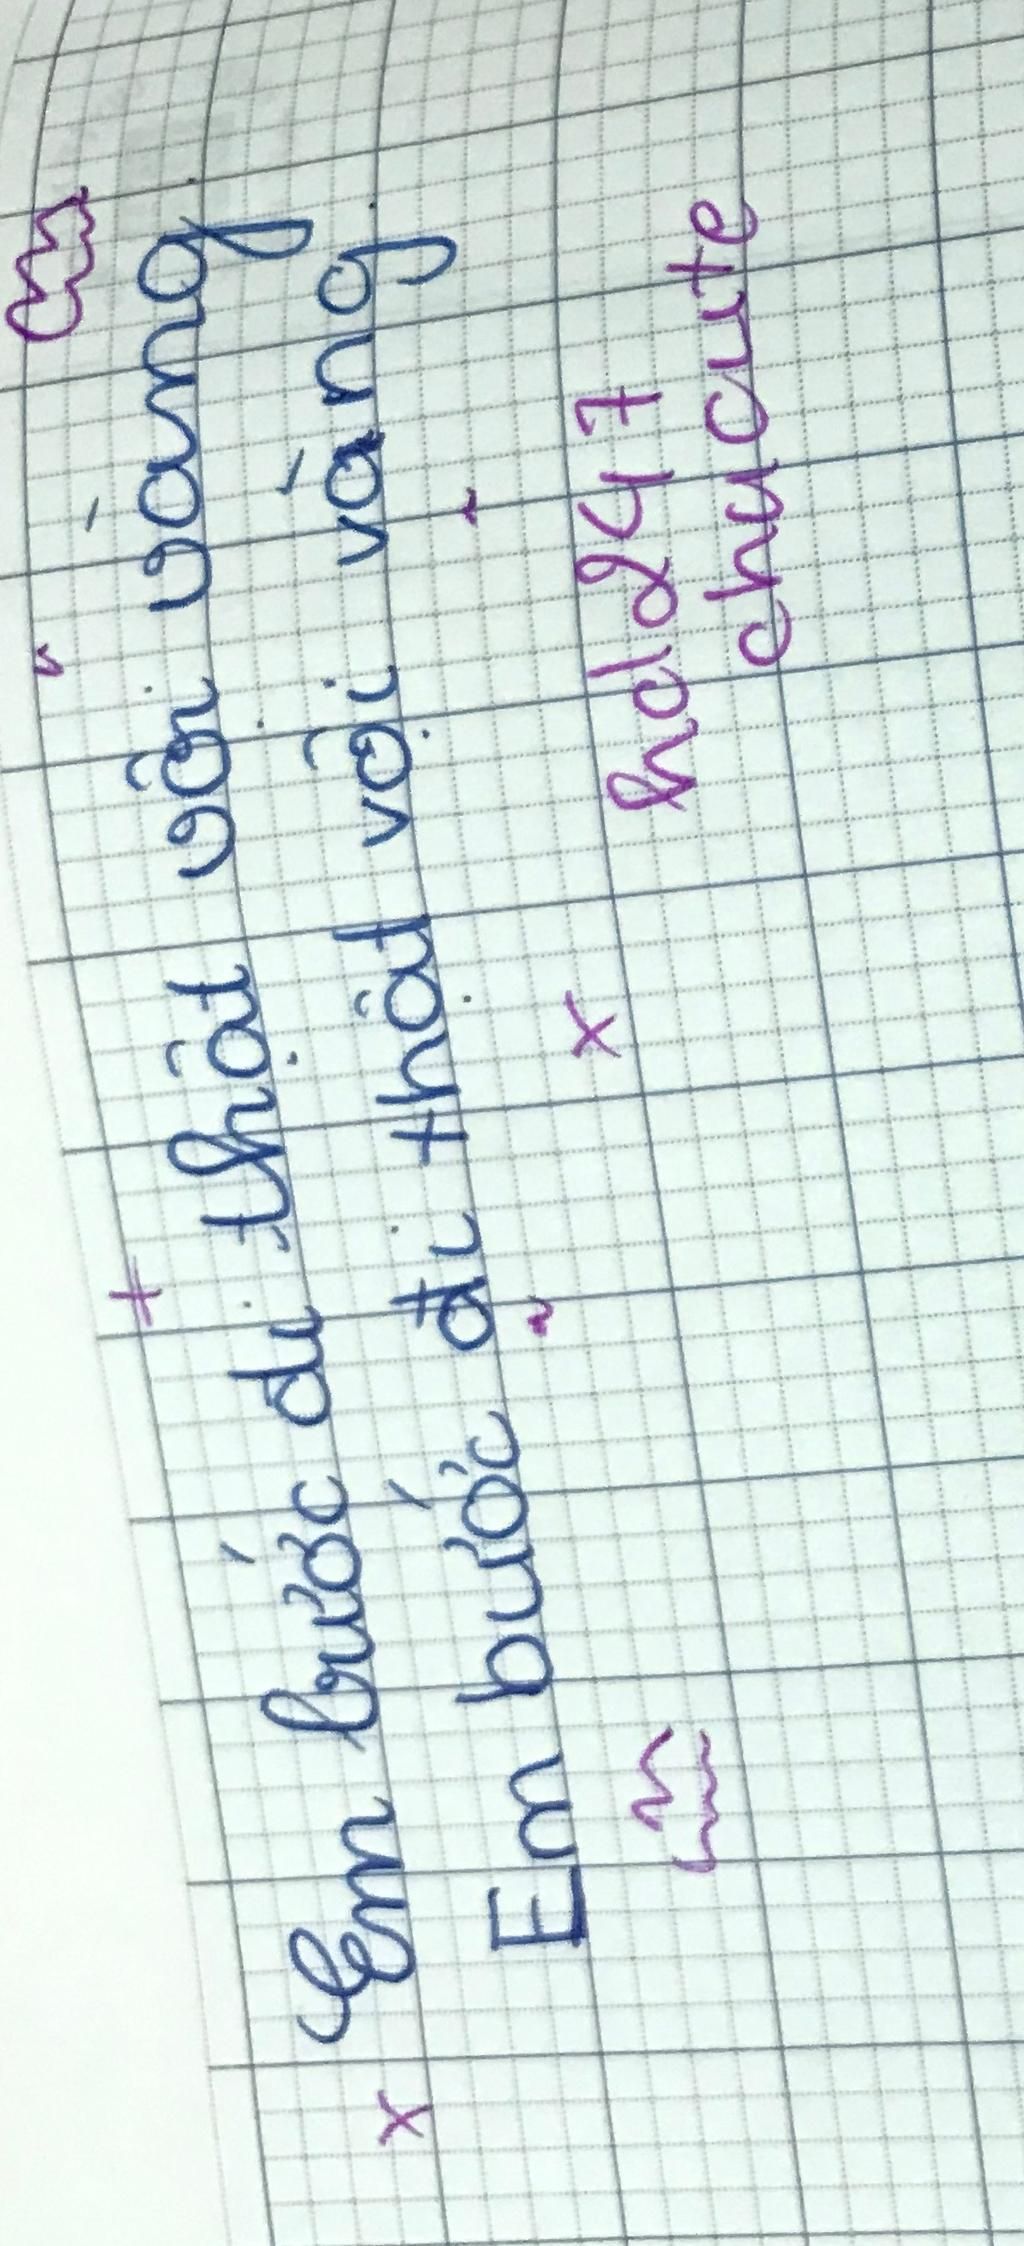 Em bước đi thật vội vàng
Em bước đi thật vội vàng
hd247
chucute